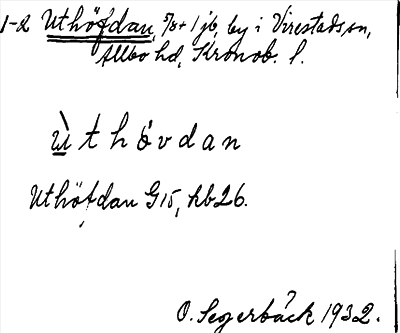 1-2 Uthöfdan, 5/8 + 1 jb, by i Virestads sn,
Allbo hd, Kronob. l.
ùthóvdan
Uthöfdan G 15, kb 26.
O. Segerbäck 1932.